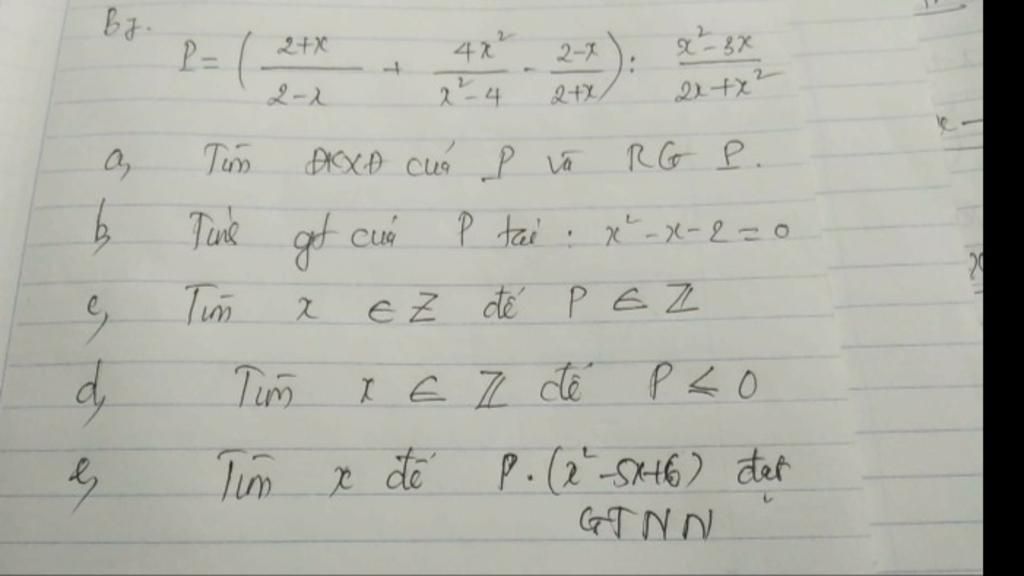 B7.
P = ( \frac{2+x}{2-x} + \frac{4x^2}{x^2-4} - \frac{2-x}{2+x} ) : \frac{x^2-3x}{2x+x^2}
a, Tìm ĐKXĐ của P và RG P.
b, Tính gt của P tại : x^2-x-2=0
c, Tìm x ∈ Z để P ∈ Z
d, Tìm x ∈ Z để P ≤ 0
e, Tìm x để P.(x^2-5x+6) đạt
GTNN